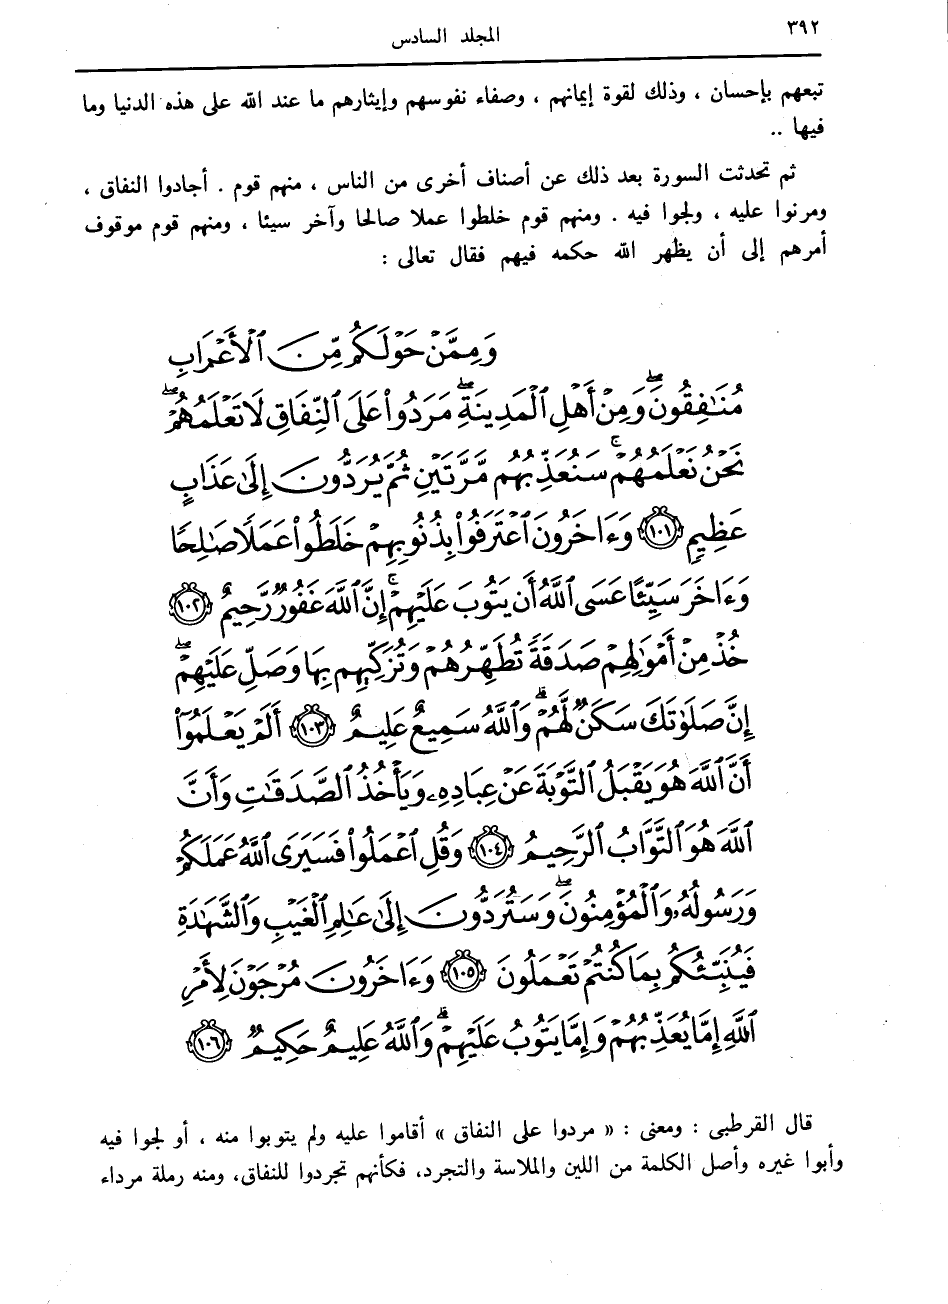 ٣٩٢
المجلد السادس
تبعهم بإحسان ، وذلك لقوة إيمانهم ، وصفاء نفوسهم وإيثارهم ما عند الله على هذه الدنيا وما
فيها ..
ثم تحدثت السورة بعد ذلك عن أصناف أخرى من الناس ، منهم قوم . أجادوا النفاق ،
ومرنوا عليه ، ولجوا فيه . ومنهم قوم خلطوا عملا صالحا وآخر سيئا ، ومنهم قوم موقوف
أمرهم إلى أن يظهر الله حكمه فيهم فقال تعالى :
وَمِمَّنْ حَوْلَكُم مِّنَ ٱلْأَعْرَابِ
مُنَٰفِقُونَۖ وَمِنْ أَهْلِ ٱلْمَدِينَةِۖ مَرَدُوا۟ عَلَى ٱلنِّفَاقِ لَا تَعْلَمُهُمْۖ
نَحْنُ نَعْلَمُهُمْۚ سَنُعَذِّبُهُم مَّرَّتَيْنِ ثُمَّ يُرَدُّونَ إِلَىٰ عَذَابٍ
عَظِيمٍ ١٠١ وَءَاخَرُونَ ٱعْتَرَفُوا۟ بِذُنُوبِهِمْ خَلَطُوا۟ عَمَلًا صَٰلِحًا
وَءَاخَرَ سَيِّئًا عَسَى ٱللَّهُ أَن يَتُوبَ عَلَيْهِمْۚ إِنَّ ٱللَّهَ غَفُورٌ رَّحِيمٌ ١٠٢
خُذْ مِنْ أَمْوَٰلِهِمْ صَدَقَةً تُطَهِّرُهُمْ وَتُزَكِّيهِم بِهَا وَصَلِّ عَلَيْهِمْۖ
إِنَّ صَلَوٰتَكَ سَكَنٌ لَّهُمْۗ وَٱللَّهُ سَمِيعٌ عَلِيمٌ ١٠٣ أَلَمْ يَعْلَمُوٓا۟
أَنَّ ٱللَّهَ هُوَ يَقْبَلُ ٱلتَّوْبَةَ عَنْ عِبَادِهِۦ وَيَأْخُذُ ٱلصَّدَقَٰتِ وَأَنَّ
ٱللَّهَ هُوَ ٱلتَّوَّابُ ٱلرَّحِيمُ ١٠٤ وَقُلِ ٱعْمَلُوا۟ فَسَيَرَى ٱللَّهُ عَمَلَكُمْ
وَرَسُولُهُۥ وَٱلْمُؤْمِنُونَۖ وَسَتُرَدُّونَ إِلَىٰ عَٰلِمِ ٱلْغَيْبِ وَٱلشَّهَٰدَةِ
فَيُنَبِّئُكُم بِمَا كُنتُمْ تَعْمَلُونَ ١٠٥ وَءَاخَرُونَ مُرْجَوْنَ لِأَمْرِ
ٱللَّهِ إِمَّا يُعَذِّبُهُمْ وَإِمَّا يَتُوبُ عَلَيْهِمْۗ وَٱللَّهُ عَلِيمٌ حَكِيمٌ ١٠٦
قال القرطبى : ومعنى : « مردوا على النفاق » أقاموا عليه ولم يتوبوا منه ، أو لجوا فيه
وأبوا غيره وأصل الكلمة من اللين والملاسة والتجرد، فكأنهم تجردوا للنفاق، ومنه رملة مرداء